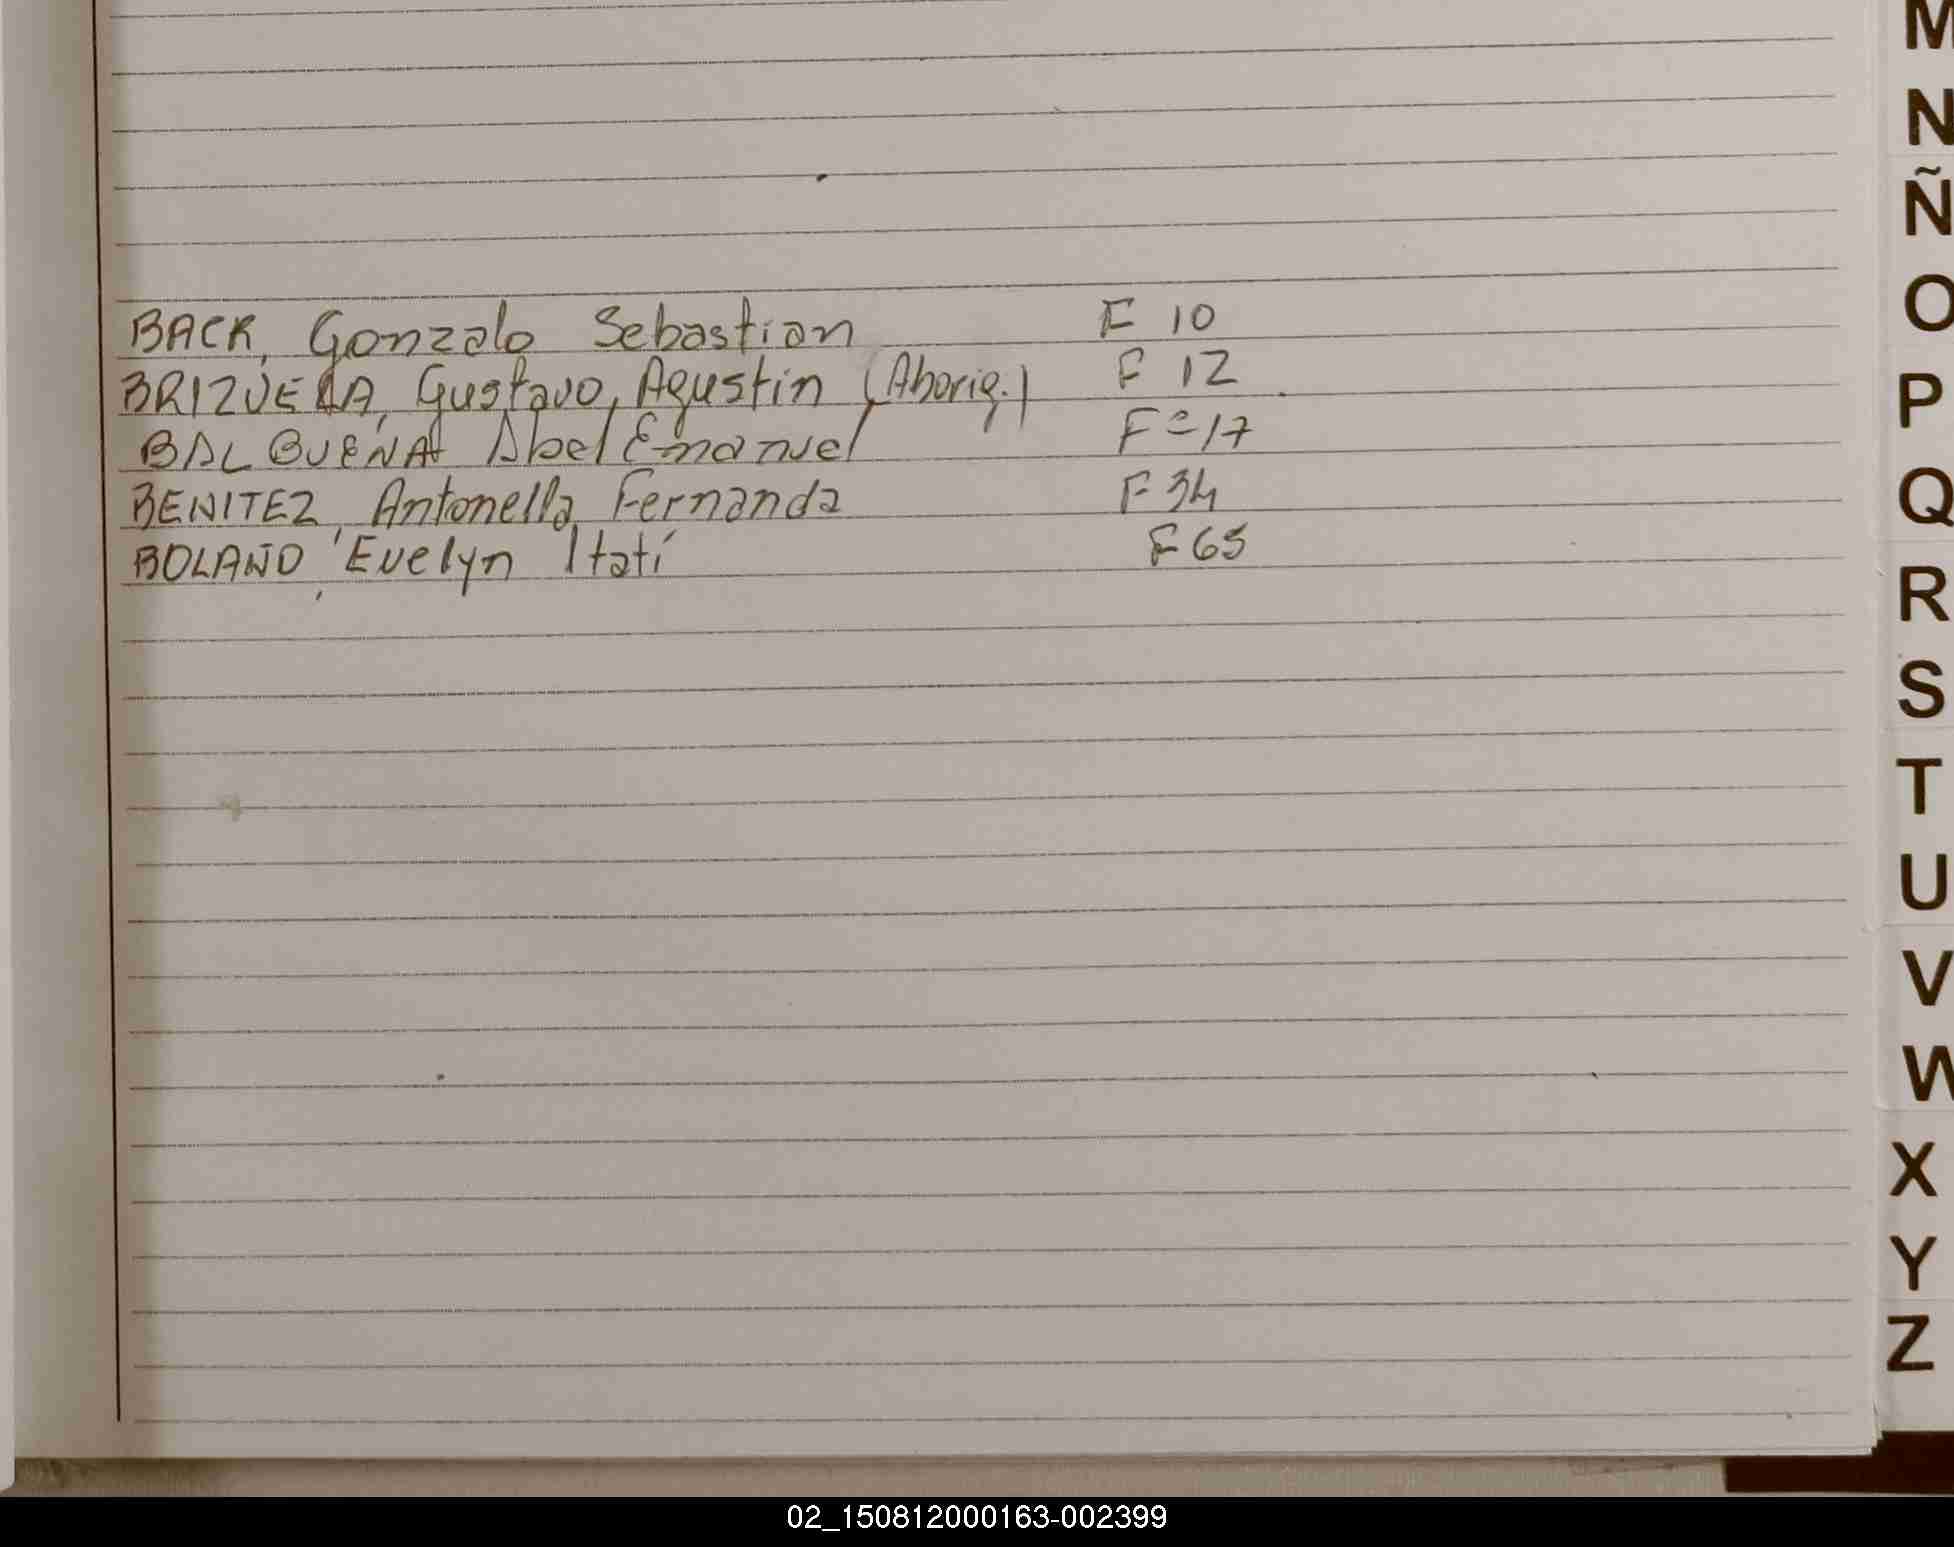 BACK, Gonzalo Sebastian F 10
BRIZUELA, Gustavo, Agustin (Aborig.) F 12
BALBUENA Abel Emanuel Fº 17
BENITEZ, Antonella Fernanda F 34
BOLAÑO, Evelyn Itatí F 65
M
N
Ñ
O
P
Q
R
S
T
U
V
W
X
Y
Z
02_150812000163-002399